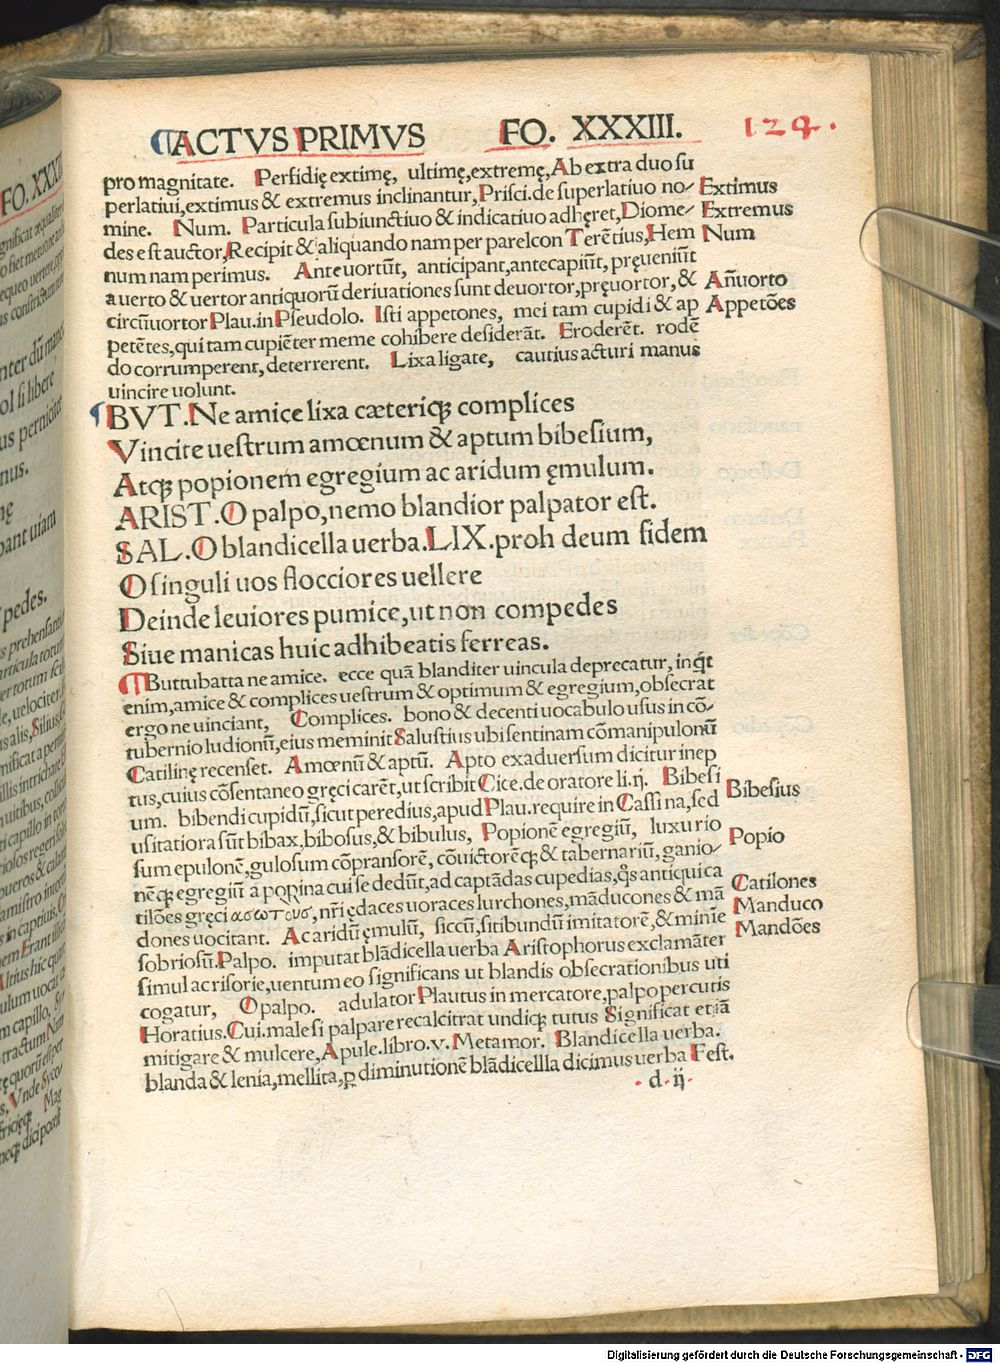 ACTVS PRIMVS FO. XXXIII. 124.
pro magnitate. Perfidię extimę, ultimę, extremę, Ab extra duo su
perlatiui, extimus & extremus inclinantur, Prisci. de superlatiuo no-
mine. Num. Particula subiunctiuo & indicatiuo adhęret, Diome-
des est auctor, Recipit & aliquando nam per parelcon Terētius, Hem
num nam perimus. Ante uortūt, anticipant, antecapiūt, pręueniūt
a uerto & uertor antiquorū deriuationes sunt deuortor, pręuortor, &
circūuortor Plau. in Pseudolo. Isti appetones, mei tam cupidi & ap
petētes, qui tam cupiēter meme cohibere desiderāt. Eroderēt. rodē
do corrumperent, deterrerent. Lixa ligate, cautius acturi manus
uincire uolunt.
Extimus
Extremus
Num
Añuorto
Appetões
BVT. Ne amice lixa cæteriq̃ complices
Vincite uestrum amœnum & aptum bibesium,
Atq̃ popionem egregium ac aridum ęmulum.
ARIST. O palpo, nemo blandior palpator est.
SAL. O blandicella uerba. LIX. proh deum fidem
O singuli uos flocciores uellere
Deinde leuiores pumice, ut non compedes
Siue manicas huic adhibeatis ferreas.
Buttubatta ne amice. ecce quā blanditer uincula deprecatur, inq̃t
enim, amice & complices uestrum & optimum & egregium, obsecrat
ergo ne uinciant, Complices. bono & decenti uocabulo usus in cō-
tubernio ludionū, eius meminit Salustius ubi sentinam cōmanipulonū
Catilinę recenset. Amœnū & aptū. Apto exaduersum dicitur inep
tus, cuius cōsentaneo gręci carēt, ut scribit Cice. de oratore li. ij. Bibesi
um. bibendi cupidū, sicut peredius, apud Plau. require in Cassina, sed
usitatiora sūt bibax, bibosus, & bibulus, Popionē egregiū, luxurio
sum epulonē, gulosum cōpransorē, cōuictorēq̃ & tabernariū, ganio-
nēq̃ egregiū a popina cui se dedūt, ad captādas cupedias, q̃s antiqui ca
tilōes gręci ασωτουσ, nr̄i ędaces uoraces lurchones, māducones & mā
dones uocitant. Ac aridū ęmulū, siccū, sitibundū imitatorē, & minīe
sobriosū. Palpo. imputat blādicella uerba Aristophorus exclamāter
simul ac risorie, uentum eo significans ut blandis obsecrationibus uti
cogatur, O palpo. adulator Plautus in mercatore, palpo percutis
Horatius. Cui. male si palpare recalcitrat undiq̃ tutus Significat etiā
mitigare & mulcere, Apule. libro. v. Metamor. Blandicella uerba.
blanda & lenia, mellita, p̱ diminutionē blādicellla dicimus uerba Fest.
Bibesius
Popio
Catilones
Manduco
Mandões
d. ij
Digitalisierung gefördert durch die Deutsche Forschungsgemeinschaft - DFG